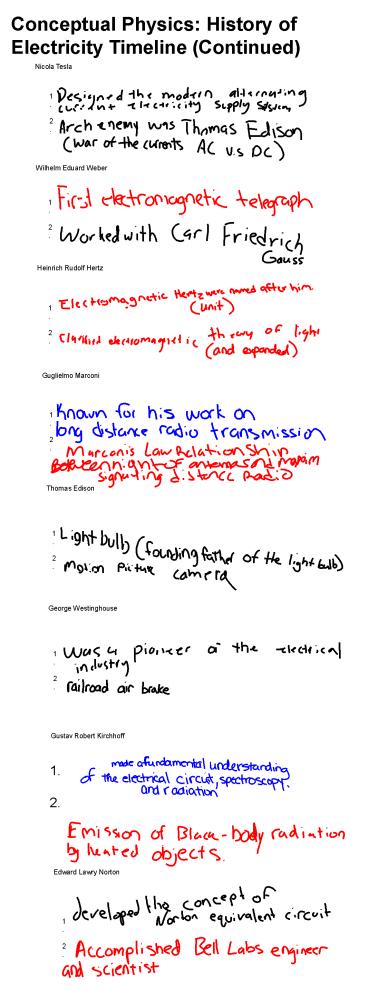 Conceptual Physics: History of
Electricity Timeline (Continued)
Nicola Tesla
1 Designed the modern alternating
current electricity supply system
2 Arch enemy was Thomas Edison
(war of the currents AC v.s DC)
Wilhelm Eduard Weber
1 First electromagnetic telegraph
2 Worked with Carl Friedrich
Gauss
Heinrich Rudolf Hertz
1 Electromagnetic Hertz were named after him
(unit)
2 Clarified electromagnetic theory of light
(and expanded)
Guglielmo Marconi
1 Known for his work on
2 long distance radio transmission
Marconis Law Relationship
Between hight of antennas and maxim
signaling distance Radio
Thomas Edison
1 Light bulb (founding father of the light bulb)
2 Motion Picture camera
George Westinghouse
1 Was a pioneer of the electrical
industry
2 railroad air brake
Gustav Robert Kirchhoff
1. made a fundamental understanding
of the electrical circuit, spectroscopy,
and radiation
2.
Emission of Black-body radiation
by heated objects.
Edward Lawry Norton
1 developed the concept of
Norton equivalent circuit
2 Accomplished Bell Labs engineer
and scientist